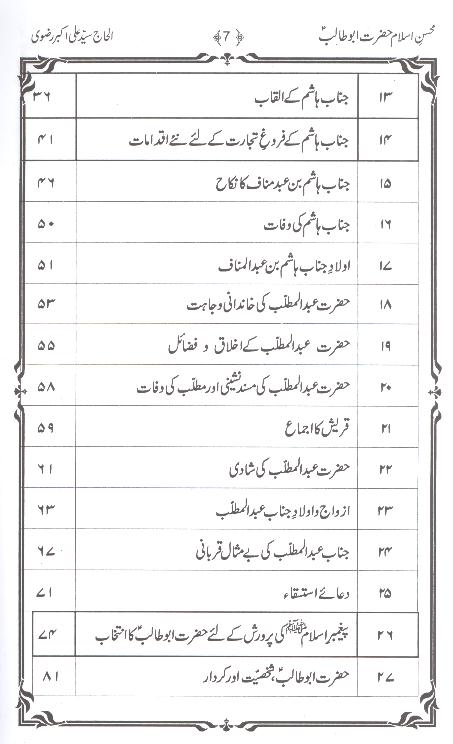 محسنِ اسلام حضرت ابوطالبؑ ﴿7﴾ الحاج سید علی اکبر رضوی
۱۳ جناب ہاشم کے القاب ۳۶
۱۴ جناب ہاشم کے فروغِ تجارت کے لئے نئے اقدامات ۴۱
۱۵ جناب ہاشم بن عبد مناف کا نکاح ۴۶
۱۶ جناب ہاشم کی وفات ۵۰
۱۷ اولادِ جناب ہاشم بن عبد المناف ۵۱
۱۸ حضرت عبدالمطلّب کی خاندانی وجاہت ۵۳
۱۹ حضرت عبدالمطلّب کے اخلاق و فضائل ۵۵
۲۰ حضرت عبدالمطلّب کی مسند نشینی اور مطلّب کی وفات ۵۸
۲۱ قریش کا اجماع ۵۹
۲۲ حضرت عبدالمطلّب کی شادی ۶۱
۲۳ ازواج و اولادِ جناب عبدالمطلّب ۶۳
۲۴ جناب عبدالمطلّب کی بے مثال قربانی ۶۷
۲۵ دعائے استسقاء ۷۱
۲۶ پیغمبرِ اسلام ﷺ کی پرورش کے لئے حضرت ابوطالبؑ کا انتخاب ۷۴
۲۷ حضرت ابوطالبؑ، شخصیّت اور کردار ۸۱